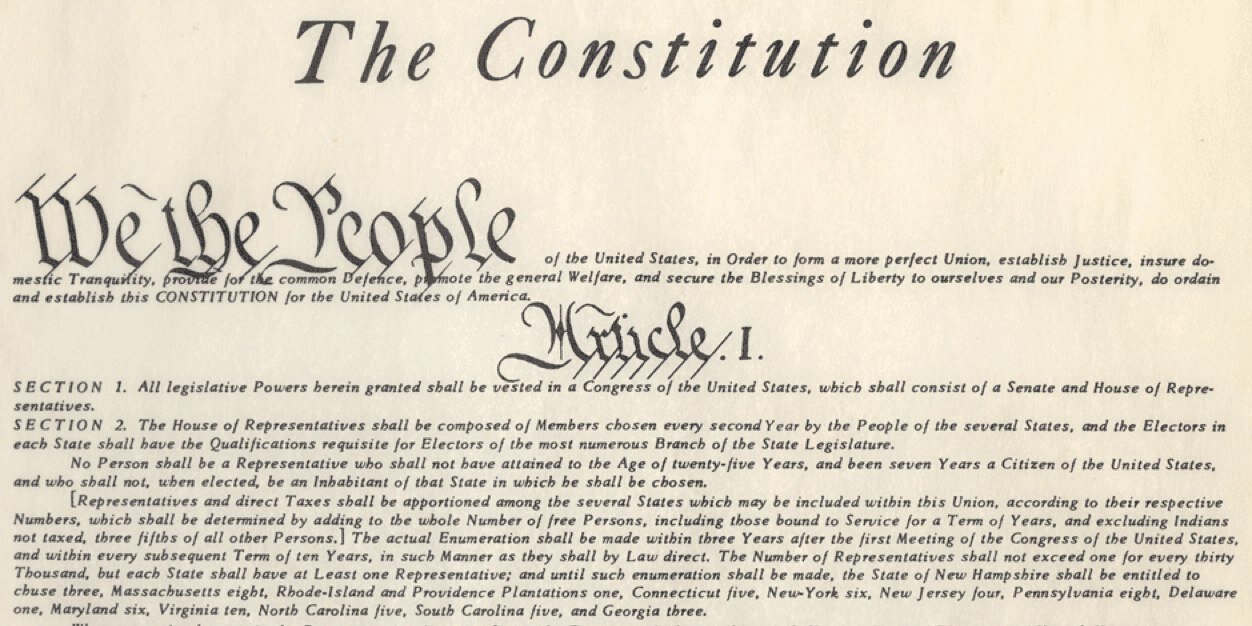 The Constitution
We the People of the United States, in Order to form a more perfect Union, establish Justice, insure do-
mestic Tranquility, provide for the common Defence, promote the general Welfare, and secure the Blessings of Liberty to ourselves and our Posterity, do ordain
and establish this CONSTITUTION for the United States of America.
Article. I.
SECTION 1. All legislative Powers herein granted shall be vested in a Congress of the United States, which shall consist of a Senate and House of Repre-
sentatives.
SECTION 2. The House of Representatives shall be composed of Members chosen every second Year by the People of the several States, and the Electors in
each State shall have the Qualifications requisite for Electors of the most numerous Branch of the State Legislature.
No Person shall be a Representative who shall not have attained to the Age of twenty-five Years, and been seven Years a Citizen of the United States,
and who shall not, when elected, be an Inhabitant of that State in which he shall be chosen.
[Representatives and direct Taxes shall be apportioned among the several States which may be included within this Union, according to their respective
Numbers, which shall be determined by adding to the whole Number of free Persons, including those bound to Service for a Term of Years, and excluding Indians
not taxed, three fifths of all other Persons.] The actual Enumeration shall be made within three Years after the first Meeting of the Congress of the United States,
and within every subsequent Term of ten Years, in such Manner as they shall by Law direct. The Number of Representatives shall not exceed one for every thirty
Thousand, but each State shall have at Least one Representative; and until such enumeration shall be made, the State of New Hampshire shall be entitled to
chuse three, Massachusetts eight, Rhode-Island and Providence Plantations one, Connecticut five, New-York six, New Jersey four, Pennsylvania eight, Delaware
one, Maryland six, Virginia ten, North Carolina five, South Carolina five, and Georgia three.